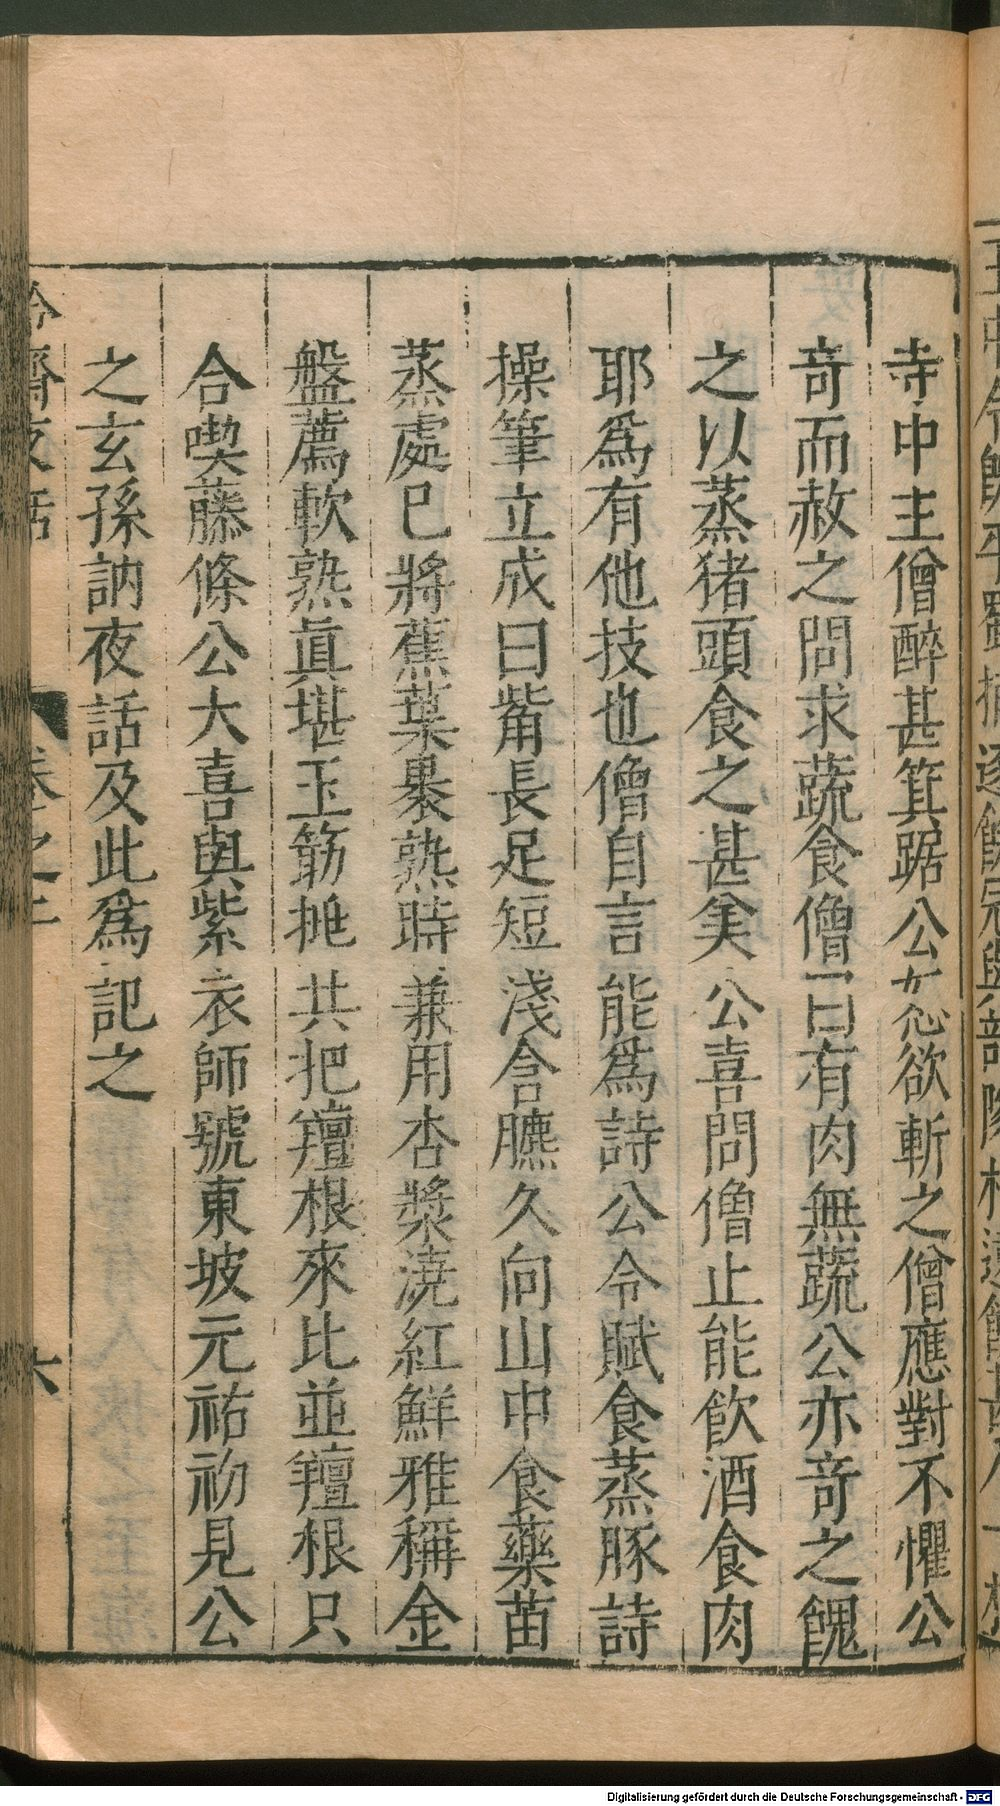 寺中主僧醉甚箕踞公大怒欲斬之僧應對不懼公
竒而赦之問求蔬食僧曰有肉無蔬公亦竒之餽
之以蒸猪頭食之甚美公喜問僧止能飲酒食肉
耶爲有他技也僧自言能爲詩公令賦食蒸豚詩
操筆立成曰觜長足短淺含臕久向山中食藥苗
蒸處已將蕉葉裹熟時兼用杏漿澆紅鮮雅稱金
盤薦軟熟眞堪玉筯挑共把羶根來比並羶根只
合喫藤條公大喜與紫衣師號東坡元祐初見公
之玄孫訥夜話及此爲記之
冷齋夜話 卷之二 六
Digitalisierung gefördert durch die Deutsche Forschungsgemeinschaft - DFG